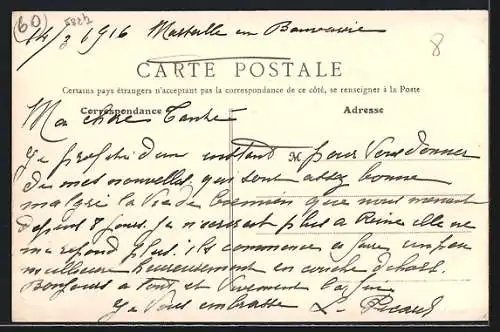 (60)
14/3 1916 Marseille en Beauvaisis
8
CARTE POSTALE
Certains pays étrangers n'acceptant pas la correspondance de ce côté, se renseigner à la Poste
Correspondance
Adresse
Ma chère Tante
Je profite d'un instant M pour Vous donner
de mes nouvelles qui sont assez bonne
malgré la vie de que nous menont
depuis 8 jours. Je n'écrirai plus a Reine elle ne
me repond plus. il commence a faire un peu
meilleure heureusement en couche dehors.
Bonjours a tout et Vivement la fin
Je Vous embrasse L. Picard